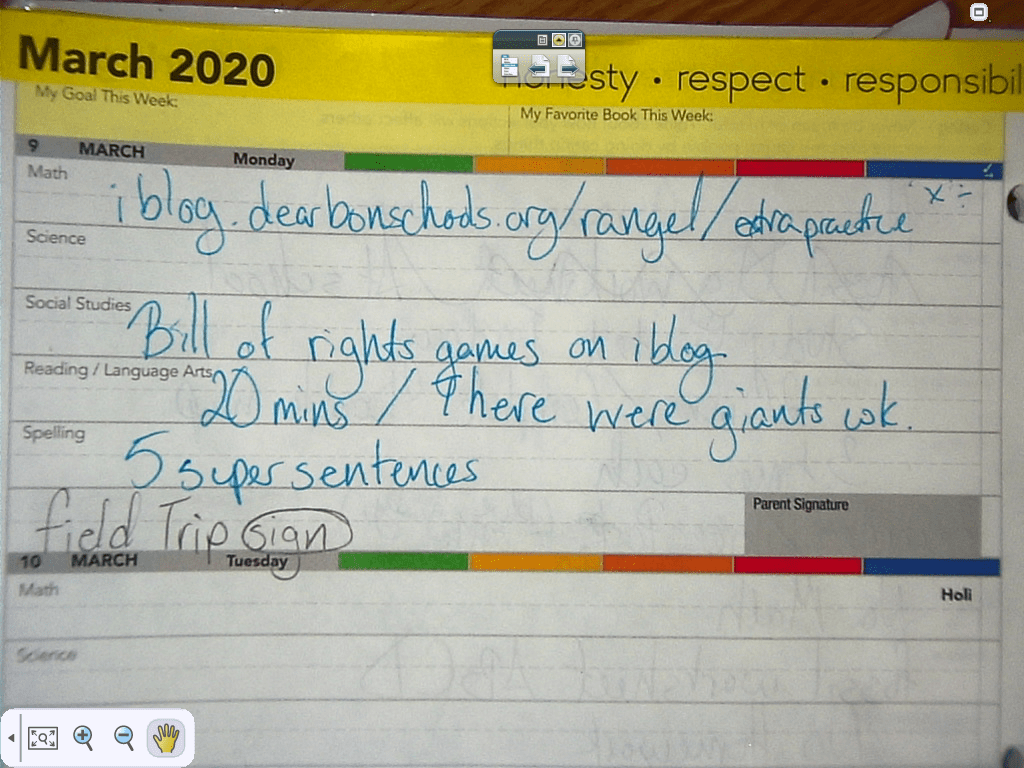 March 2020
honesty • respect • responsibil
My Goal This Week:
My Favorite Book This Week:
9 MARCH Monday
Math
iblog.dearbonschools.org/rangel/extrapractice "x" ÷
Science
Social Studies
Bill of rights games on iblog
Reading / Language Arts
20 mins / There were giants wk.
Spelling
5 super sentences
Parent Signature
field Trip sign
10 MARCH Tuesday
Math
Holi
Science